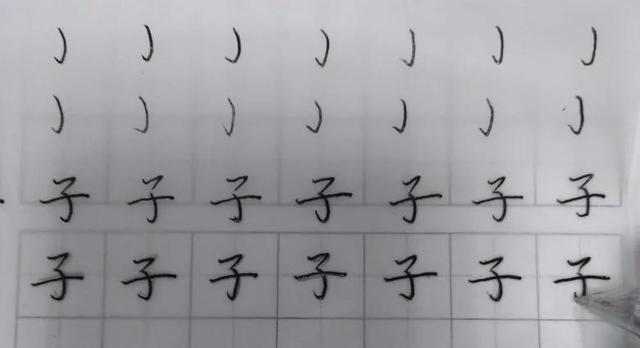 亅 亅 亅 亅 亅 亅 亅
亅 亅 亅 亅 亅 亅 亅
子 子 子 子 子 子 子
子 子 子 子 子 子 子